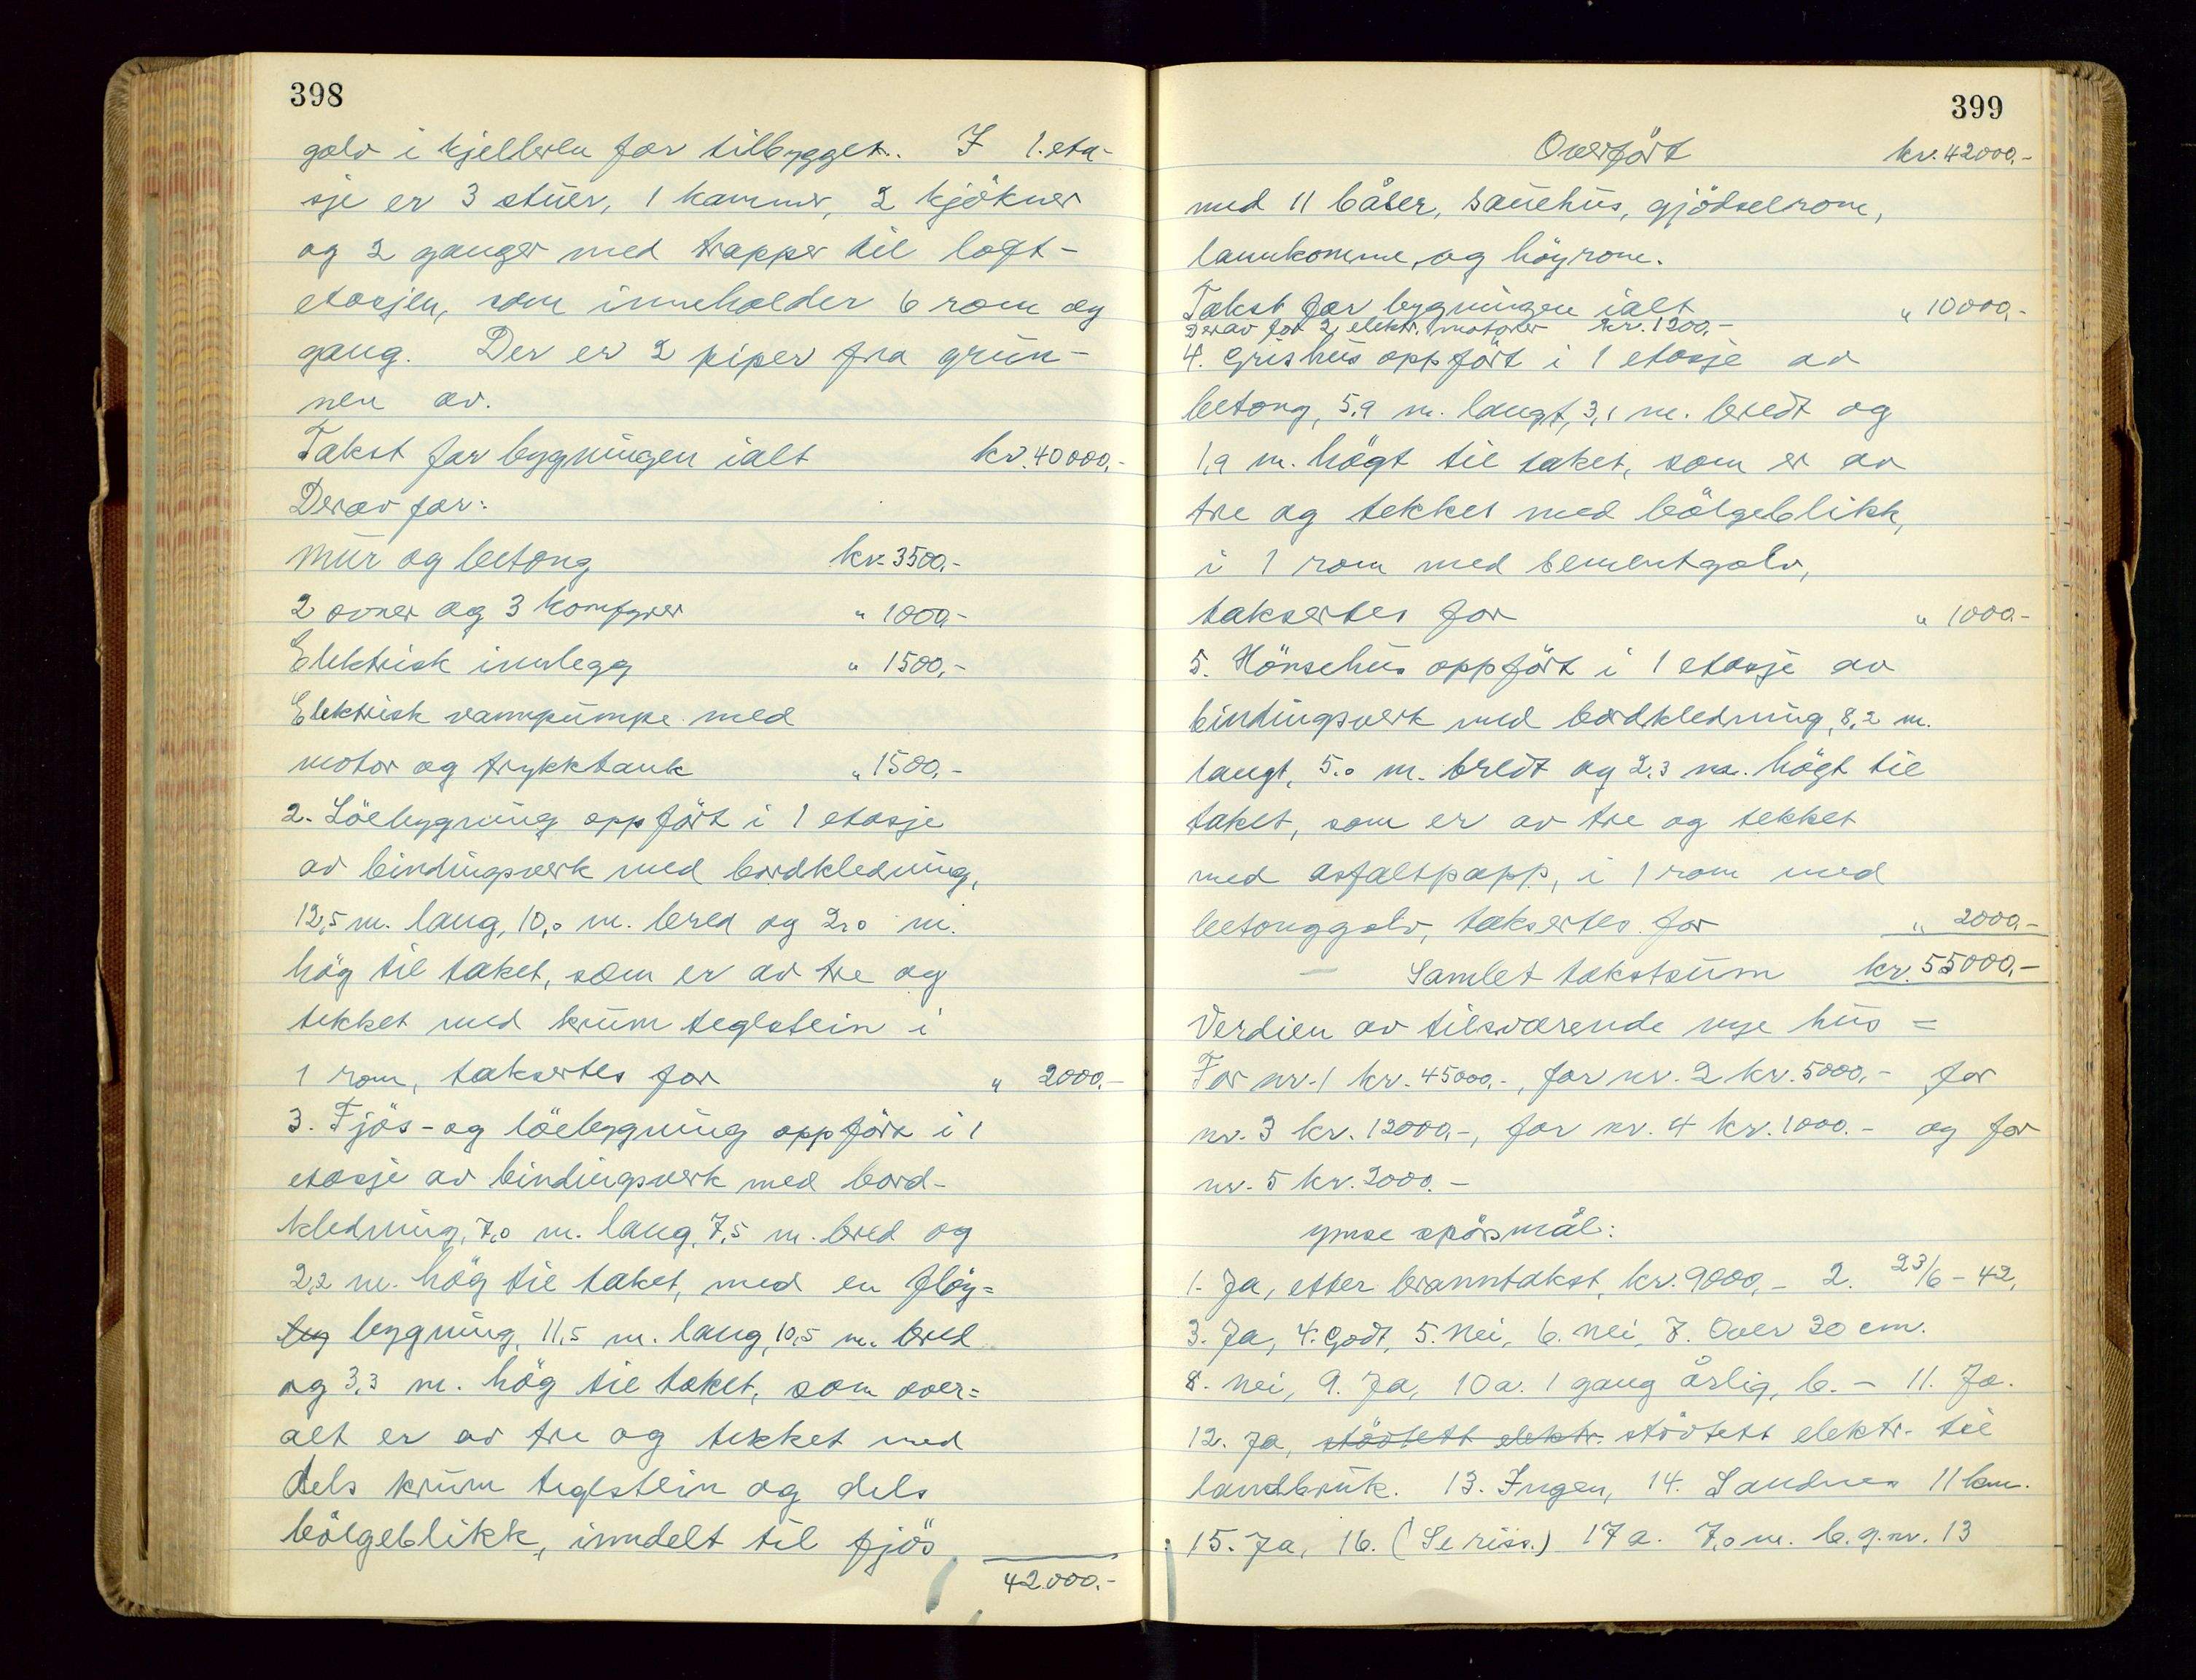 398
golv i kjelleren for tilbygget. I 1. eta-
sje er 3 stuer, 1 kammer, 2 kjökner
og 2 ganger med trapper til loft-
etasjen, som inneholder 6 rom og
gang. Der er 2 piper fra grun-
nen av.
Takst for bygningen ialt kr. 40000,-
Derav for:
Mur og betong kr. 3500,-
2 ovner og 3 komfyrer " 1000,-
Elektrisk innlegg " 1500,-
Elektrisk vannpumpe med
motor og trykktank " 1500,-
2. Löebygning oppfört i 1 etasje
av bindingsverk med bordkledning,
12,5 m. lang, 10,0 m. bred og 2,0 m.
hög til taket, som er av tre og
tekket med krum teglstein i
1 rom, taksertes for " 2000,-
3. Fjös- og löebygning oppfört i 1
etasje av bindingsverk med bord-
kledning, 7,0 m. lang, 7,5 m. bred og
2,2 m. hög til taket, med en flöy=
bygning, 11,5 m. lang, 10,5 m. bred
og 3,3 m. hög til taket, som over=
alt er av tre og tekket med
dels krum teglstein og dels
bölgeblikk, inndelt til fjös
42000,-
399
Overfört kr. 42000,-
med 11 båser, sauehus, gjödselrom,
lannkomme, og höyrom.
Takst for bygningen ialt " 10000,-
Derav for 2 elektr. motorer kr. 1200,-
4. Grishus oppfört i 1 etasje av
betong, 5,9 m. langt, 3,1 m. bredt og
1,9 m. högt til taket, som er av
tre og tekket med bölgeblikk,
i 1 rom med sementgolv,
taksertes for " 1000,-
5. Hönsehus oppfört i 1 etasje av
bindingsverk med bordkledning, 8,2 m.
langt, 5,0 m. bredt og 2,3 m. högt til
taket, som er av tre og tekket
med asfaltpapp, i 1 rom med
betonggolv, taksertes for " 2000,-
Samlet takstsum kr. 55000,-
Verdien av tilsvarende nye hus =
For nr. 1 kr. 45000,-, for nr. 2 kr. 5000,- for
nr. 3 kr. 12000,-, for nr. 4 kr. 1000.- og for
nr. 5 kr. 2000.-
Ymse spörsmål:
1. Ja, etter branntakst, kr. 9000,- 2. 23/6-42,
3. Ja, 4. Godt, 5. Nei, 6. Nei, 7. Over 20 cm.
8. Nei, 9. Ja, 10a. 1 gang årlig, b. - 11. Ja.
12. Ja, stövtett elektr. stövtett elektr. til
landbruk. 13. Ingen, 14. Sandnes 11 km.
15. Ja, 16. (Se riss.) 17 a. 7,0 m. b. g.nr. 13